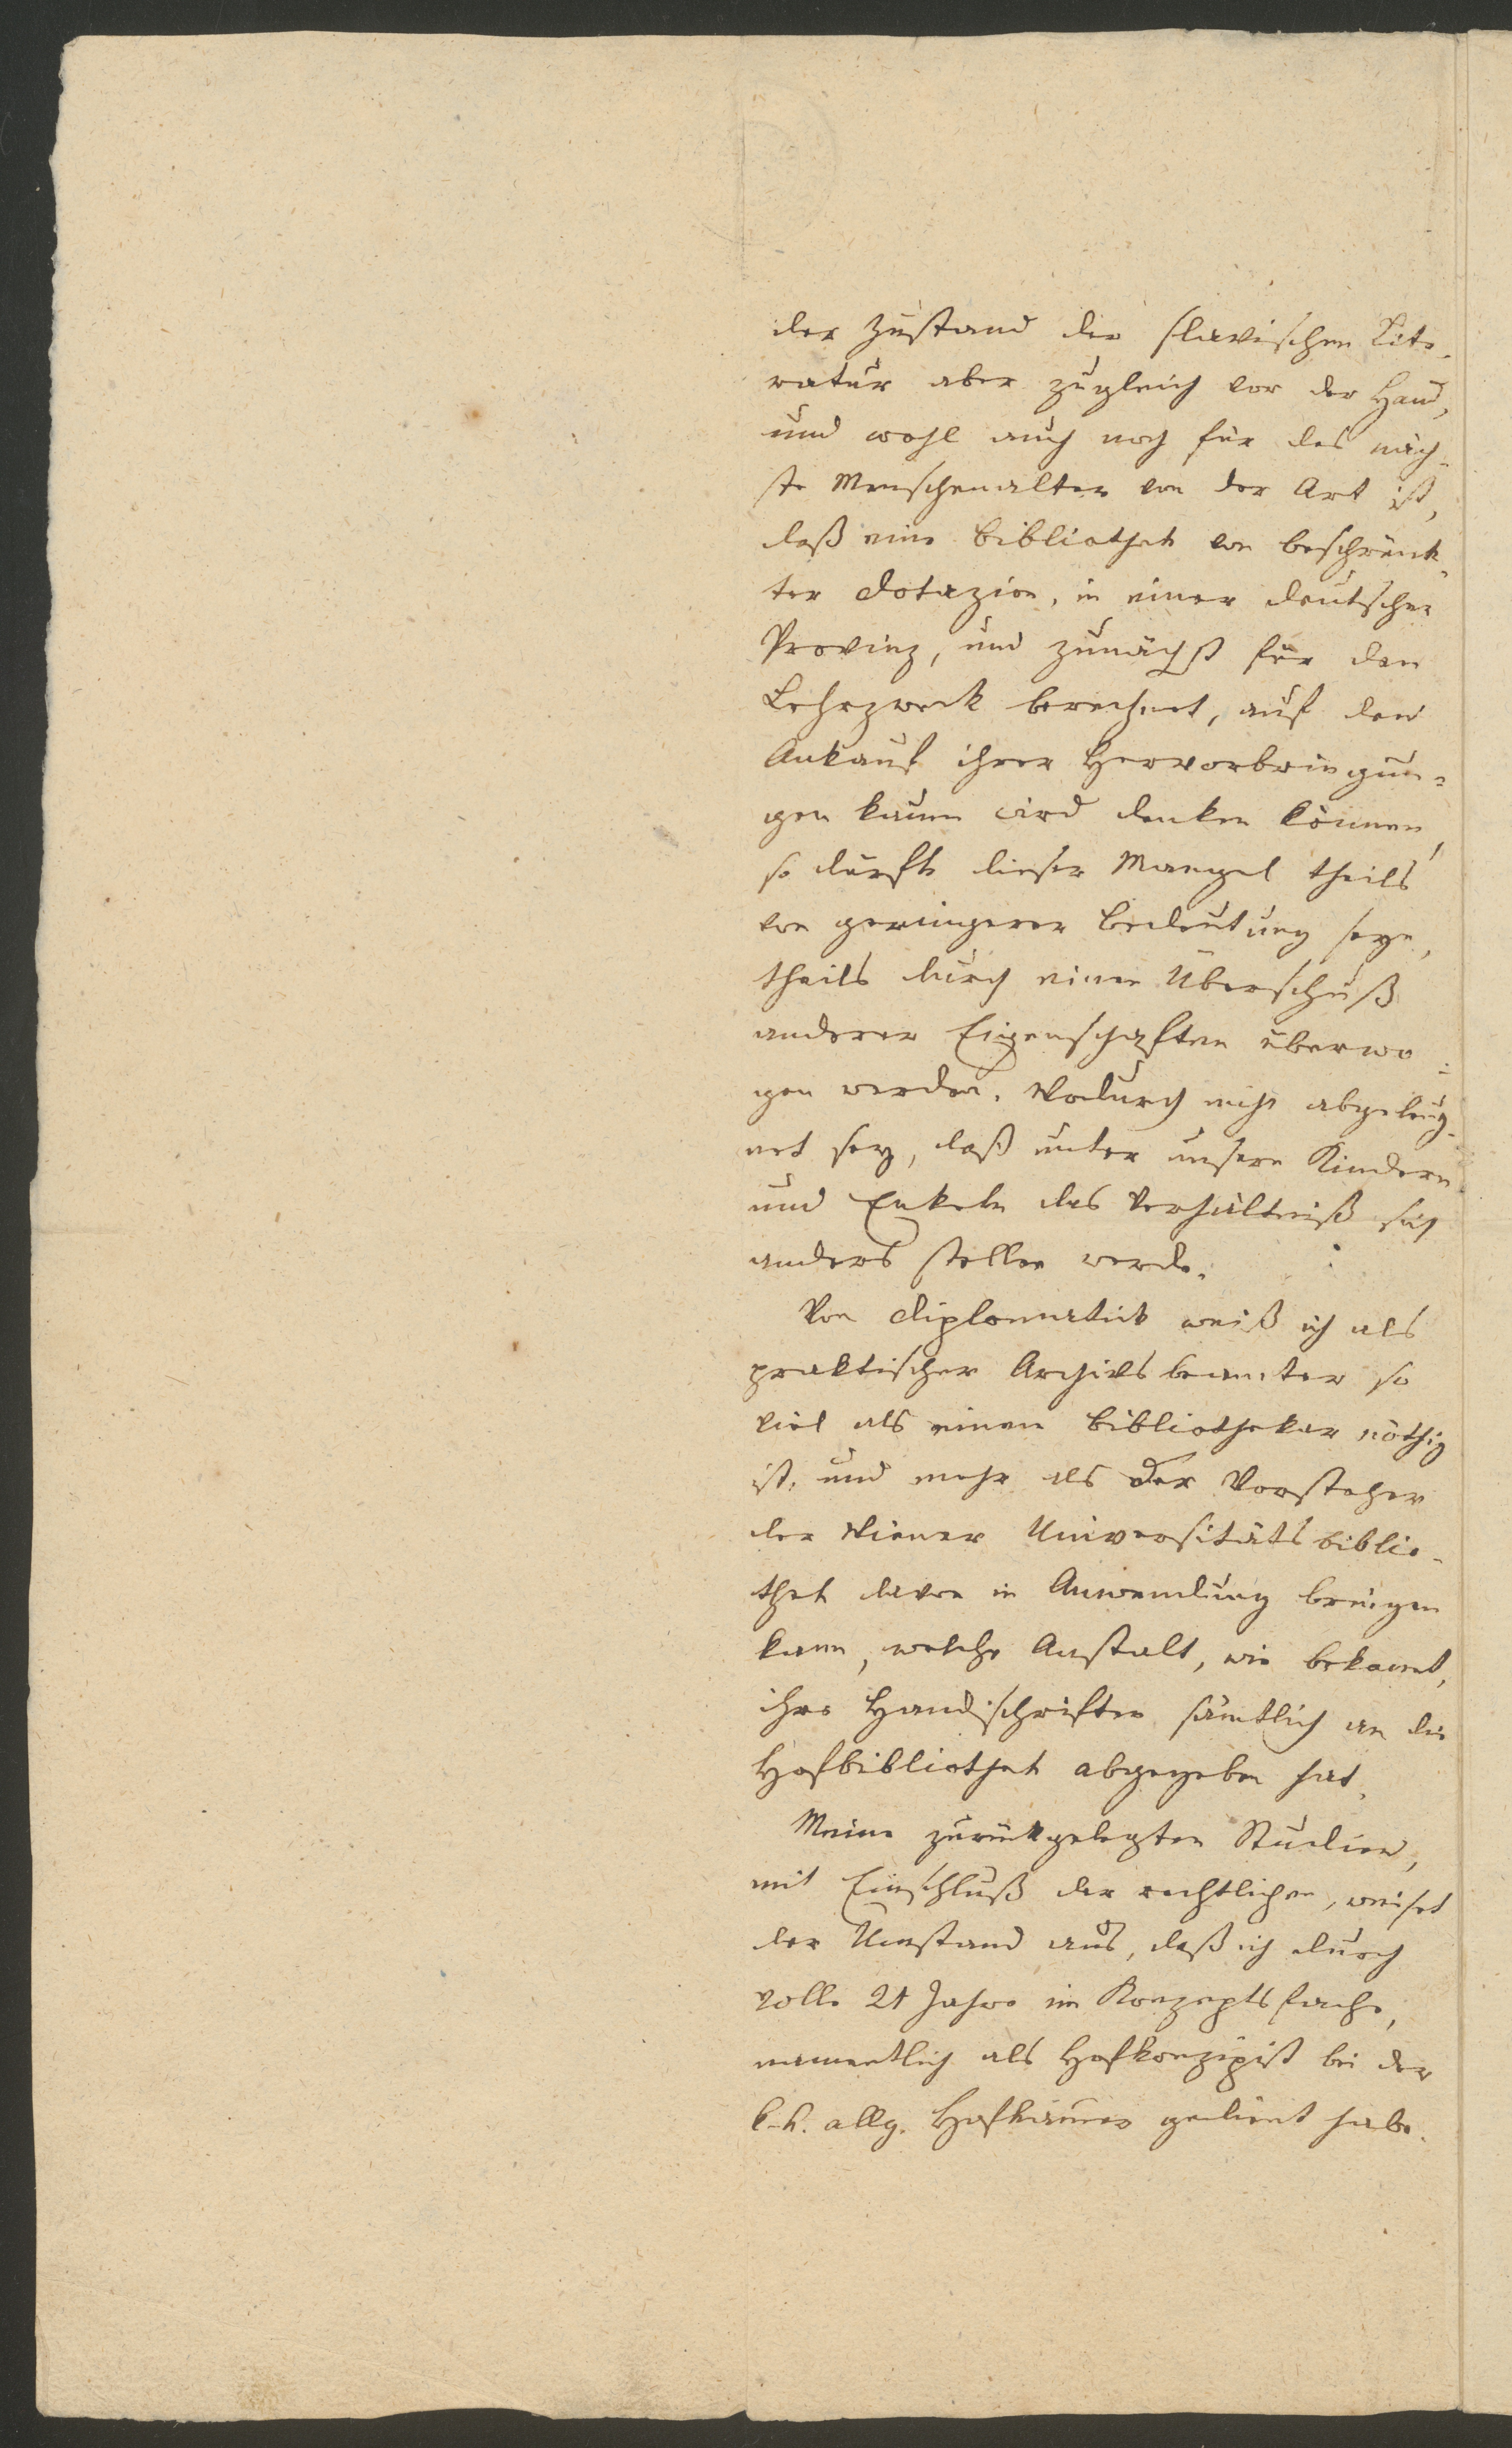 der Zustand der slavischen Lite-
ratur aber zugleich vor der Hand,
und wohl auch noch für das näch-
ste Menschenalter von der Art ist,
daß eine Bibliothek von beschränk-
ter Dotazion, in einer deutschen
Provinz, und zunächst für den
Lehrzweck berechnet, auf den
Ankauf ihrer Hervorbringun=
gen kaum wird denken können,
so dürfte dieser Mangel theils
von geringerer Bedeutung seyn,
theils durch einen Überschuß
anderer Eigenschaften überwo=
gen werden. Wodurch nicht abgeläug-
net sey, daß unter unsern Kindern
und Enkeln das Verhältniß sich
anders stellen werde.
Von Diplomatik weiß ich als
praktischer Archivsbeamter so
viel als einem Bibliothekar nöthig
ist, und mehr als der Vorsteher
der Wiener Universitätsbiblio-
thek davon in Anwendung bringen
kann, welche Anstalt, wie bekannt,
ihre Handschriften sämtlich an die
Hofbibliothek abgegeben hat.
Meine zurückgelegten Studien,
mit Einschluß der rechtlichen, weiset
der Umstand aus, daß ich durch
volle 21 Jahre im Konzeptsfache,
namentlich als Hofkonzipist bei der
k.k. allg. Hofkammer gedient habe.